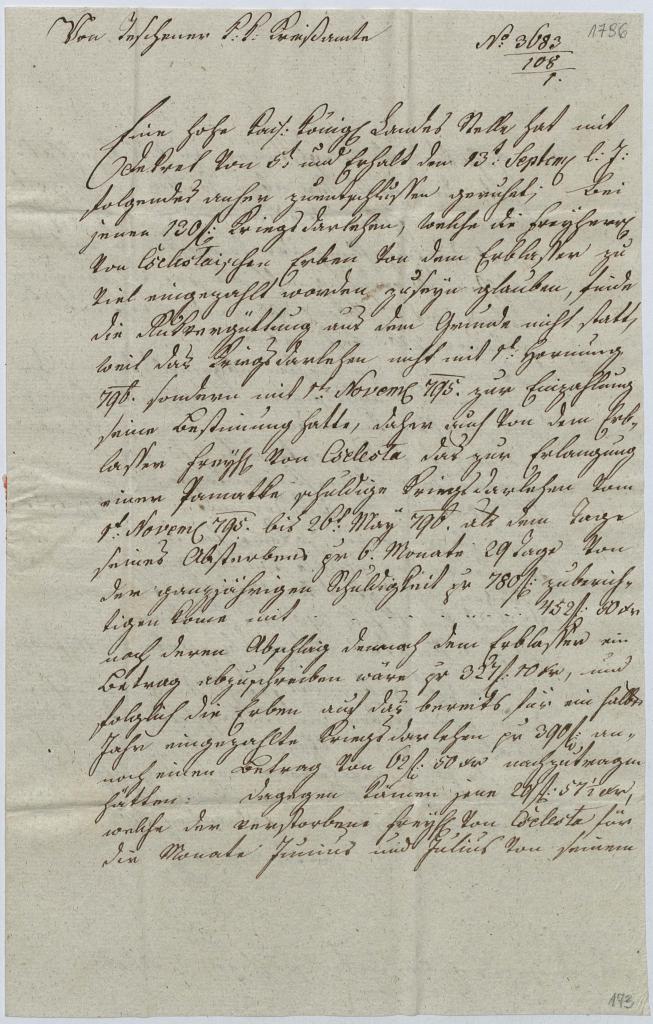 Von Teschener k: k: Kreißamte
No 3683
108
1.
1796
Eine hohe kais: königl Landes Stelle hat mit
Dekret von 5t und Erhalt den 13t: Septem l: J:
folgendes anher zuentschlüssen geruhet; Bei
jenen 130 f: Kriegsdarlehen, welche die Freyherrl
von Cselestaischen Erben von dem Erblasser zu
viel eingezahlt worden zuseyn glauben, finde
die Rükvergüttung aus dem Grunde nicht statt,
weil das Kriegsdarlehen nicht mit 1t: Hornung
796. sondern mit 1tn Novemb 795. zur Einzahlung
seine Bestimung hatte, daher auch von dem Erb-
lasser Freyh von Cselesta das zur Erlangung
einer Pamatke schuldige Kriegsdarlehen vom
1t Novemb 795. bis 26t May 796. als dem Tage
seines Absterbens pr 6. Monate 29 Tage von
der ganzjährigen Schuldigkeit pr 780 f: zuberich-
tigen kome mit . . . . . . 452 f: 50 kr
nach deren Abschlag demnach dem Erblasser ein
Betrag abzuschreiben wäre pr 327 f: 10 kr, und
folglich die Erben auf das bereits für ein halbes
Jahr eingezahlte Kriegsdarlehen pr 390 f: an-
noch einen Betrag von 62 f: 50 kr nachzutragen
hätten: dagegen kämen jene 29 f: 57 1/2 kr,
welche der verstorbene Freyh von Cselesta für
die Monate Junius und Julius von seinem
173